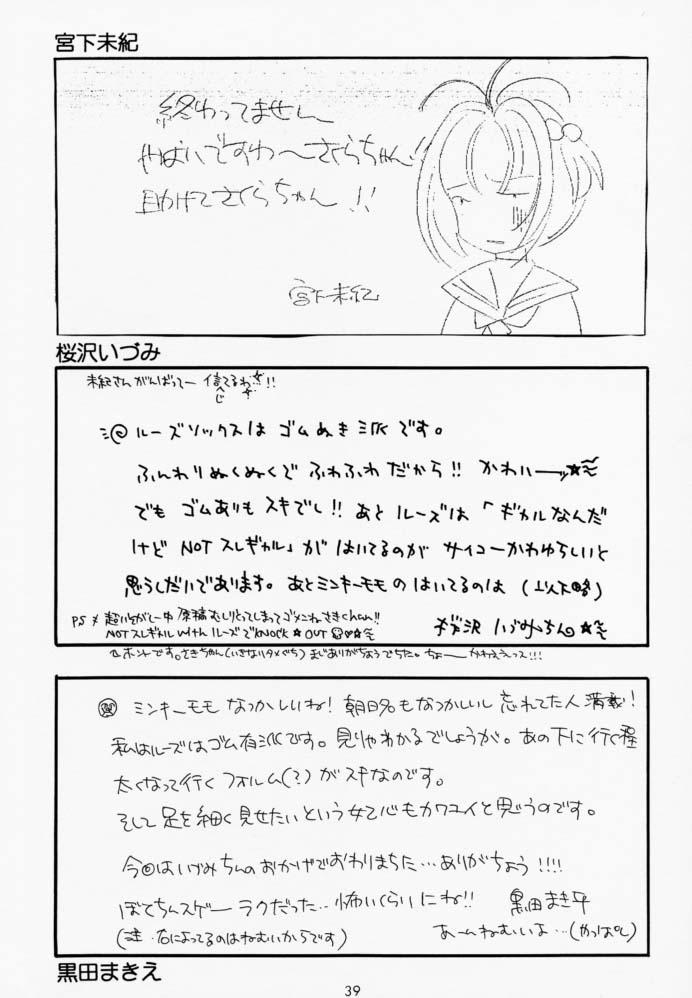 宮下未紀
終わってません
やばいですわ〜さくらちゃん!!
助けてさくらちゃん!!
宮下未紀
桜沢いづみ
未紀さんがんばってー 信じてるわ!!
ルーズソックスは ゴムぬき派です。
ふんわりぬくぬくで ふわふわだから!! かわいーッ☆
でも ゴムありも スキでし!! あと ルーズは 「ギャルなんだ
けど NOT スレギャル」が はいてるのが サイコーかわゆらしいと
思うしだいであります。あとミンキーモモのはいてるのは (以下略)
PS 超いそがしー中 原稿むしりとってしまってゴメンねさきchan!!
NOTスレギャル with ルーズでKNOCK☆OUT
桜沢 いづみちん☆
ホントです。さきちゃん(いきなりタメぐち) まじありがちょうでちた。ちょーーかわええっス!!!
ミンキーモモ なつかしいね! 朝日名もなつかしいし 忘れてた人 満載!
私はルーズはゴム有派です。見りゃわかるでしょうが。あの下に行く程
太くなって行く フォルム(?)がスキなのです。
そして 足を細く見せたいという女心もカワユイと思うのです。
今回はいづみちんのおかげでおわりまちた…ありがちょう!!!!
ぽてちんスゲーラクだった…怖いくらいにね!! 黒田まきえ
(注・右によってるのはねむいからです) あームねむいよ…(やっぱし)
黒田まきえ
39